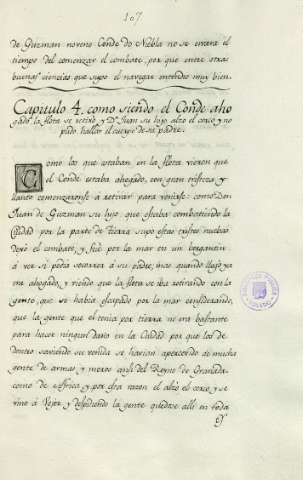 107
de Guzman noveno Conde de Niebla no se errara el
tiempo del comenzar el combate, por que entre otras
buenas ciencias que supo el navegar entendio muy bien.
Capitulo 4. como siendo el Conde aho
gado la flota se retiró, y Dn. Juan su hijo alzó el cerco, y no
pudo hallar el cuerpo de su padre.
Como los que estaban en la flota vieron que
el Conde estaba ahogado, con gran tristeza y
llanto comenzaronse á retirar para venirse: como Don
Juan de Guzman su hijo, que estaba combatiendo la
Ciudad por la parte de tierra supo estas tristes nuebas
dexó el combate, y fué por la mar en un bergantin
á ver si podia socorrer á su padre, mas quando llegó ya
era ahogado, y viendo que la flota se iba retirando con la
gente, que se habia escapado por la mar considerando,
que la gente que el tenia por tierra no era bastante
para hacer ningun daño en la Ciudad por que los de
dentro saviendo su venida se havian apercevido de mucha
gente de armas, y moros ansi del Reyno de Granada
como de Africa, y por esta razon el alzó el cerco, y se
vino á Vejer, y despidiendo la gente quedose alli en toda